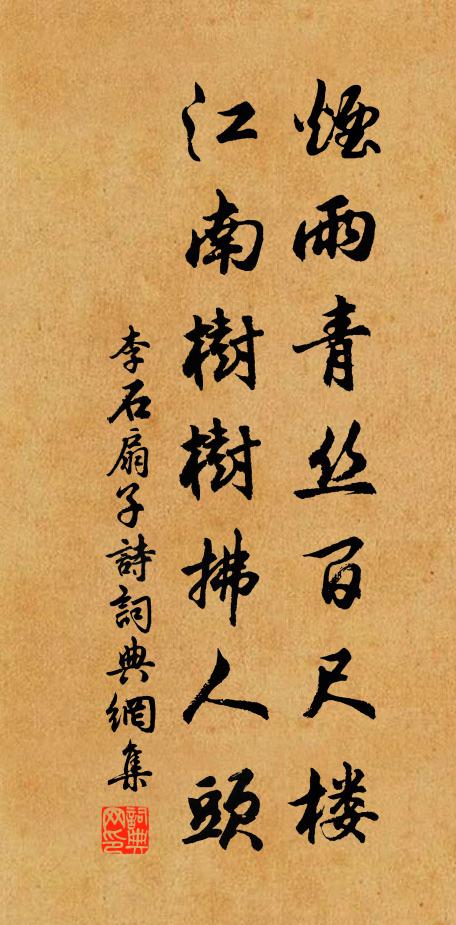 煙雨青丝百尺楼
江南樹樹拂人頭
李石扇子詩詞典網集
詞典网印